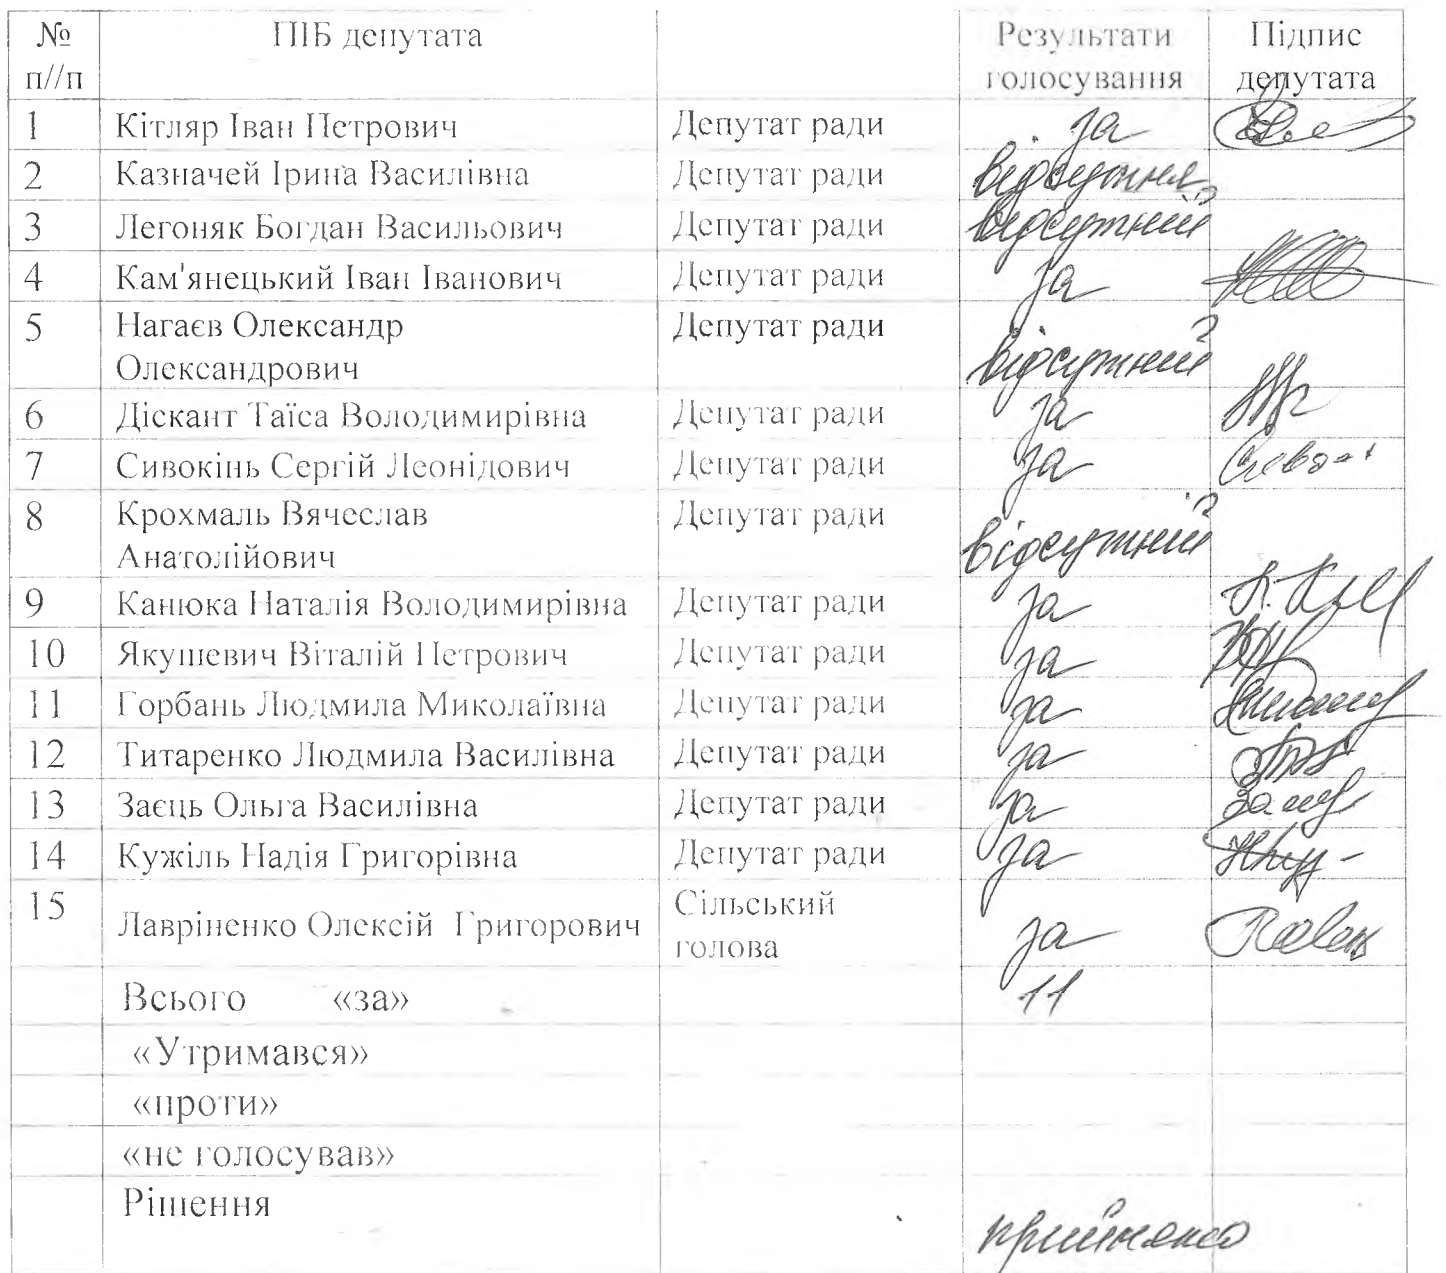 № п//п ПІБ депутата Результати голосування Підпис депутата
1 Кітляр Іван Петрович Депутат ради за
2 Казначей Ірина Василівна Депутат ради відсутня
3 Легоняк Богдан Васильович Депутат ради відсутній
4 Кам'янецький Іван Іванович Депутат ради за
5 Нагаєв Олександр Олександрович Депутат ради відсутній
6 Діскант Таїса Володимирівна Депутат ради за
7 Сивокінь Сергій Леонідович Депутат ради за
8 Крохмаль Вячеслав Анатолійович Депутат ради відсутній
9 Канюка Наталія Володимирівна Депутат ради за
10 Якушевич Віталій Петрович Депутат ради за
11 Горбань Людмила Миколаївна Депутат ради за
12 Титаренко Людмила Василівна Депутат ради за
13 Заєць Ольга Василівна Депутат ради за
14 Кужіль Надія Григорівна Депутат ради за
15 Лавріненко Олексій Григорович Сільський голова за
Всього «за» 11
«Утримався»
«проти»
«не голосував»
Рішення прийнято